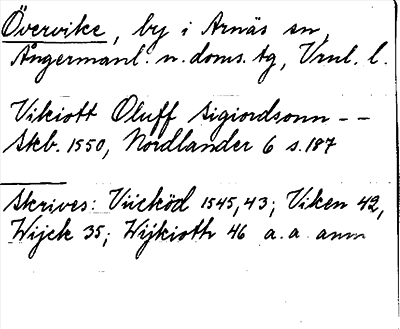 Övervike, by i Arnäs sn,
Ångermanl. n. doms. tg, Vrnl. l.
Vikiott Oluff Sigiordsonn - -
Skb. 1550, Nordlander 6 s. 187
Skrives: Viicköd 1545, 43; Viken 42,
Wijck 35; Wijkioth 46 a. a. anm